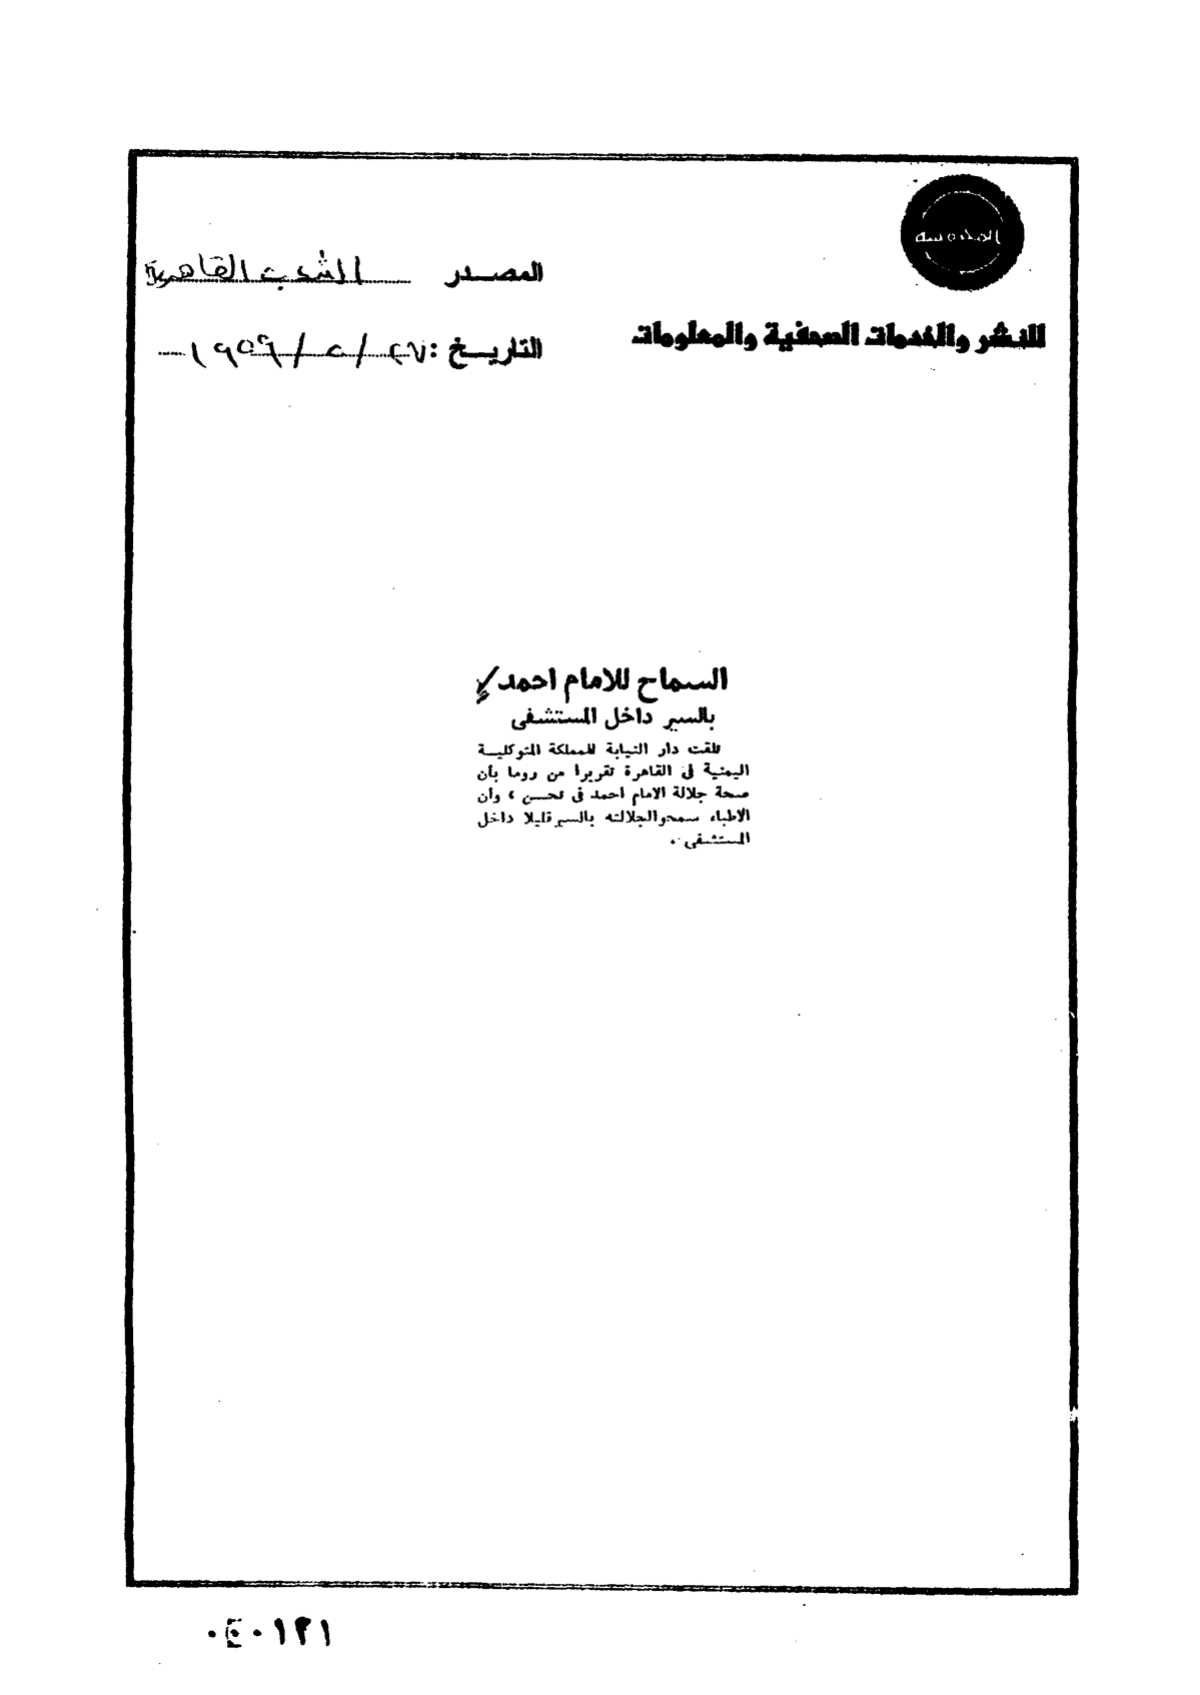 المحروسة
للنشر والخدمات الصحفية والمعلومات
المصدر الشعب القاهرية
التاريخ : ٢٧ / ٥ / ١٩٥٩
السماح للامام احمد
بالسير داخل المستشفى
تلقت دار النيابة للمملكة المتوكلية
اليمنية فى القاهرة تقريرا من روما بأن
صحة جلالة الامام احمد فى تحسن ، وأن
الاطباء سمحوالجلالته بالسير قليلا داخل
المستشفى .